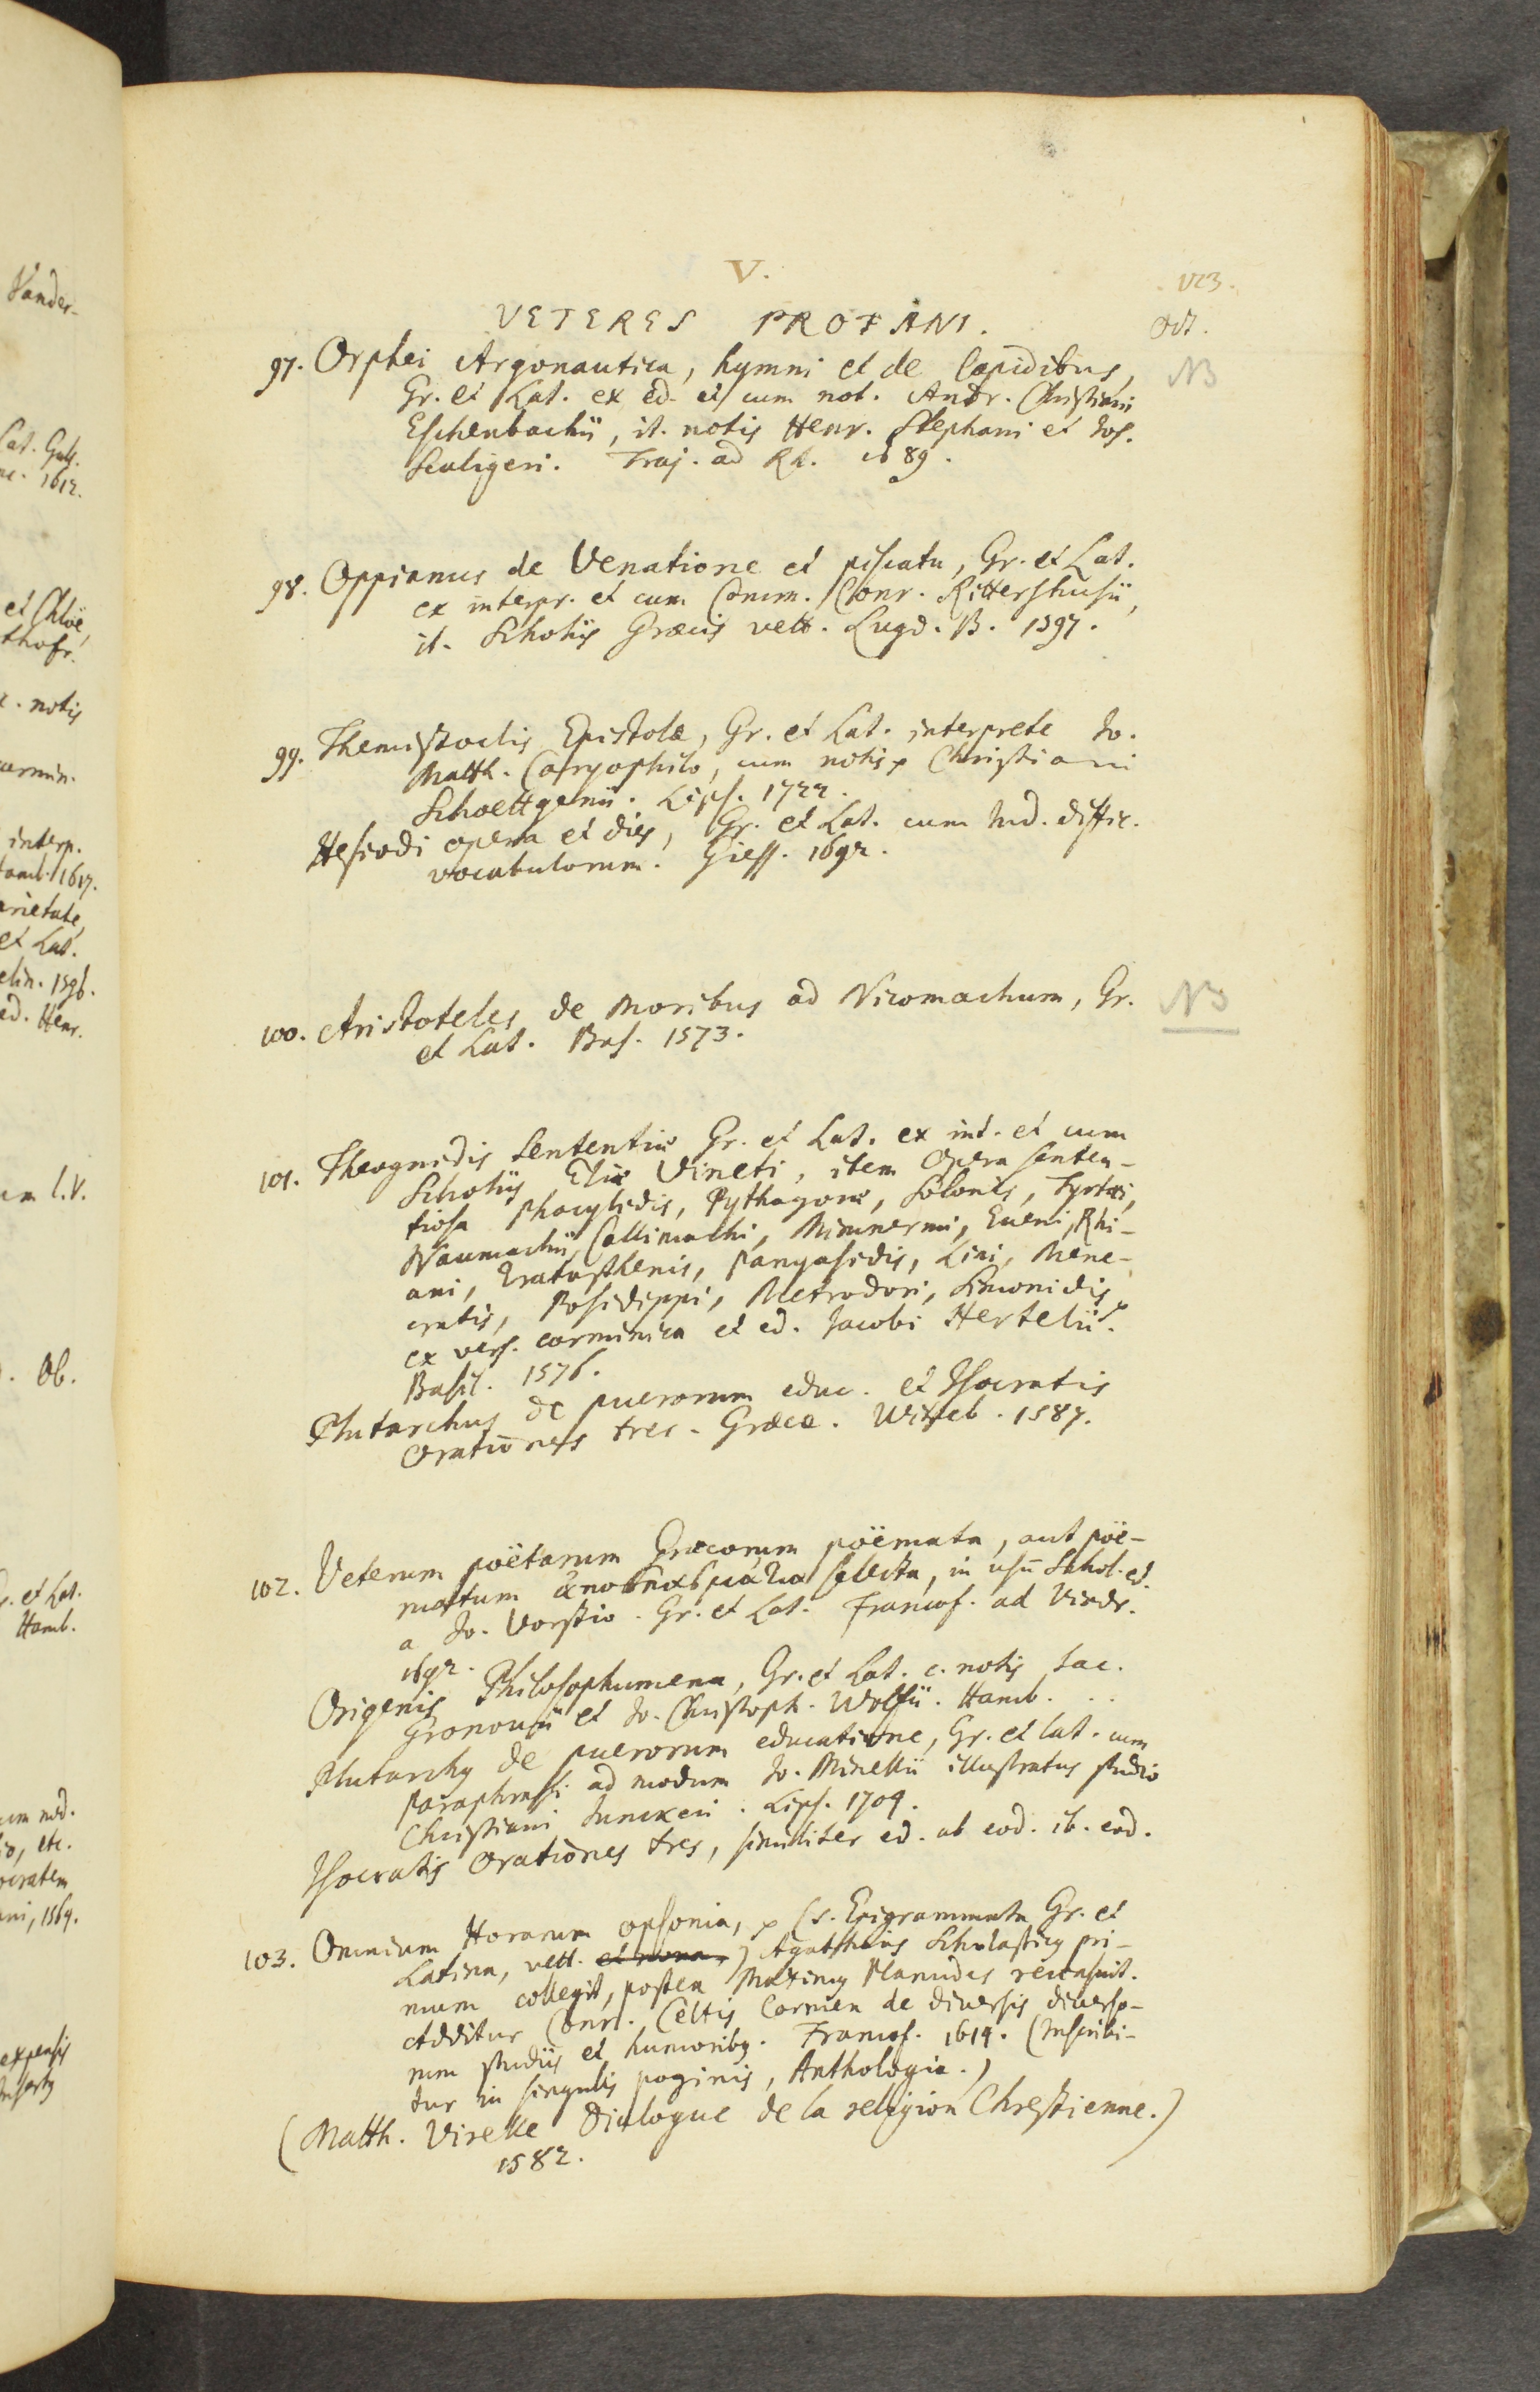 V.
VETERES PROFANI.
Oct.
97. Orphei Argonautica, hymni et de lapidibus,
NB
Gr. et Lat. ex ed. et cum not. Andr. Christiani
Eschenbachii, it. notis Henr. Stephani et Jos.
Scaligeri. Traj. ad Rh. 1689.
98. Oppianus de Venatione et piscatu, Gr. et Lat.
ex interpr. et cum Comm. Conr. Rittershusii,
it. Scholiis Græcis vett. Lugd. B. 1597.
99. Themistoclis Epistolæ, Gr. et Lat. interprete Jo.
Matth. Caryophilo, cum notis Christiani
Schoettgenii. Lips. 1722.
Hesiodi opera et dies, Gr. et Lat. cum Ind. diffic.
vocabulorum. Giess. 1692.
100. Aristoteles de Moribus ad Nicomachum, Gr.
NB
et Lat. Bas. 1573.
101. Theognidis Sententiæ Gr. et Lat. ex int. et cum
Scholiis Eliæ Vineti, item Opera senten-
tiosa Phocylidis, Pythagoræ, Solonis, Tyrtæi,
Naumachii, Callimachi, Mimnermi, Eueni, Rhi-
ani, Eratosthenis, Panyasidis, Lini, Mene-
cratis, Posidippi, Metrodori, Simonidis
ex vers. carminica et ed. Jacobi Hertelii.
Basil. 1576.
Plutarchus de puerorum educ. et Isocratis
Orationes tres. Græce. Witteb. 1587.
102. Veterum poëtarum Græcorum poëmata, aut poë-
matum ἀποσπασμάτια selecta, in usū Schol. ed.
a Jo. Vorstio. Gr. et Lat. Francof. ad Viadr.
1692.
Origenis Philosophumena, Gr. et Lat. c. notis Jac.
Gronovii et Jo. Christoph. Wolfii. Hamb. ..
Plutarchq de puerorum educatione, Gr. et lat. cum
paraphrasi ad modum Jo. Minellii illustratus studio
Christiani Junckeri. Lips. 1704.
Isocratis Orationes tres, similiter ed. ab eod. ib. eod.
103. Omnium Horarum opsonia, (s. Epigrammata Gr. et
Latina, vett. et nova,) Agathias Scholasticq pri-
mum collegit, postea Maximq Planudes recensuit.
Additur Conr. Celtis Carmen de diversis diverso-
rum studiis et humoribq. Francof. 1614. (Inscribi-
tur in singulis paginis, Anthologia.)
(Matth. Virelle Dialogue de la religion Chrestienne.)
1582.